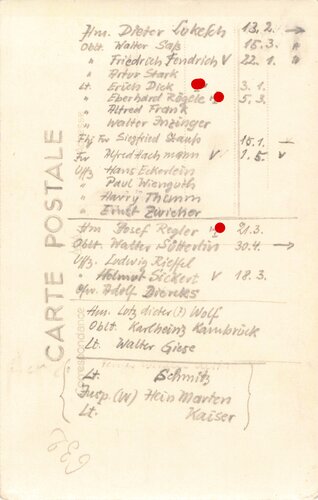 Hm. Dieter Lukesch 13.2. →
Oblt. Walter Saß 15.3. "
" Friedrich Fendrich V 22.1. "
" Artur Stark
Lt. Erich Dick 3.1.
" Eberhard Rögele 5.3.
" Alfred Frank
" Walter Inzinger
Fhj Fw Siegfried Staub 15.1. —
Fw Alfred Hachmann V 1.5. v
Uffz Hans Eckerlein
" Paul Wienguth
" Harry Thimm
" Ernst Zwicker
Hm Josef Regler 21.3.
Oblt. Walter Sütterlin 30.4. →
Uffz. Ludwig Rieffel
" Helmut Sickert V 18.3.
Adolf Dierckes
Hm. Lutz dieter (?) Wolf
Oblt. Karlheinz Kambrück
Lt. Walter Giese
Lt. Schmitz
Insp. (W) Hein Marten
Lt. Kaiser
CARTE POSTALE
Correspondance